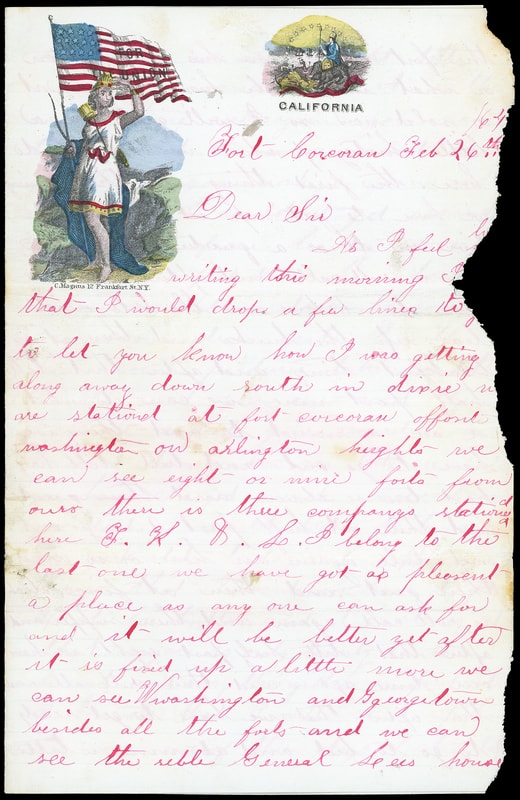 FOR
UNION
CALIFORNIA
C. Magnus 12 Frankfort St. N.Y.
/64
Fort Corcoran Feb 26th
Dear Sir
As I feel
writing this morning I
that I would drops a few lines to
to let you know how I was getting
along away down south in dixie
are stationd at fort corcoran oppsit
washington on arlington heights we
can see eight or nine forts from
ours there is three companys stationed
here I belong to the
last one we have got as pleasent
a place as any one can ask for
and it will be better yet after
it is fixed up a little more we
can see Wwashington and Ggeorgetown
besides all the forts and we can
see the reble General Lees house